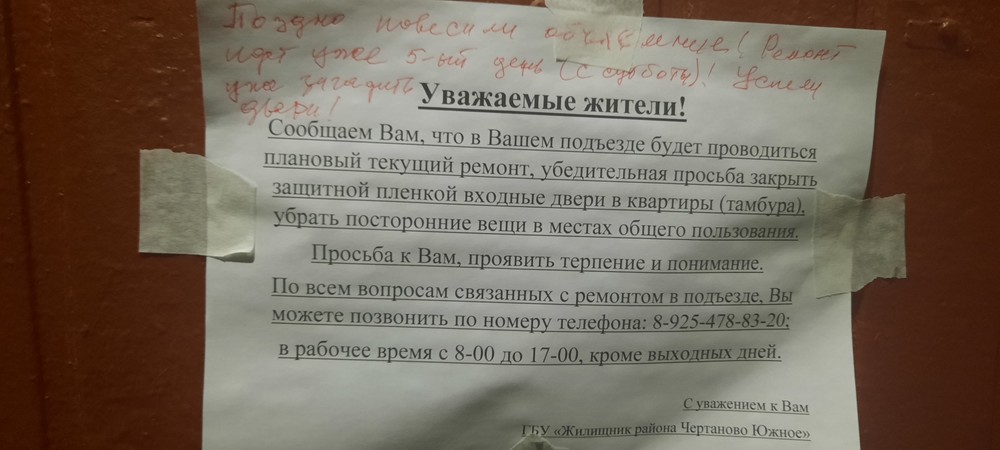 Поздно повесили объявление! Ремонт
идет уже 5-ый день (с субботы)! Успели
уже загадить
двери!
Уважаемые жители!
Сообщаем Вам, что в Вашем подъезде будет проводиться
плановый текущий ремонт, убедительная просьба закрыть
защитной пленкой входные двери в квартиры (тамбура),
убрать посторонние вещи в местах общего пользования.
Просьба к Вам, проявить терпение и понимание.
По всем вопросам связанных с ремонтом в подъезде, Вы
можете позвонить по номеру телефона: 8-925-478-83-20;
в рабочее время с 8-00 до 17-00, кроме выходных дней.
С уважением к Вам
ГБУ «Жилищник района Чертаново Южное»